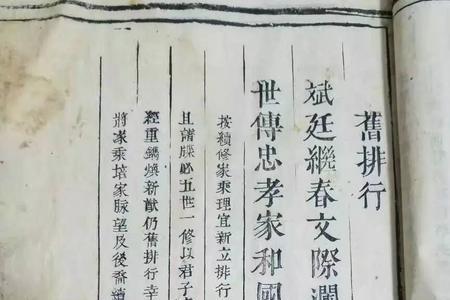 舊排行
斌廷繼春文際瀾
世傳忠孝家和國
按續修家乘理宜新立排行
且諸牒必五世一修以君子
經重鐫煥新猷仍舊排行幸
將家乘培家脈望及後裔續